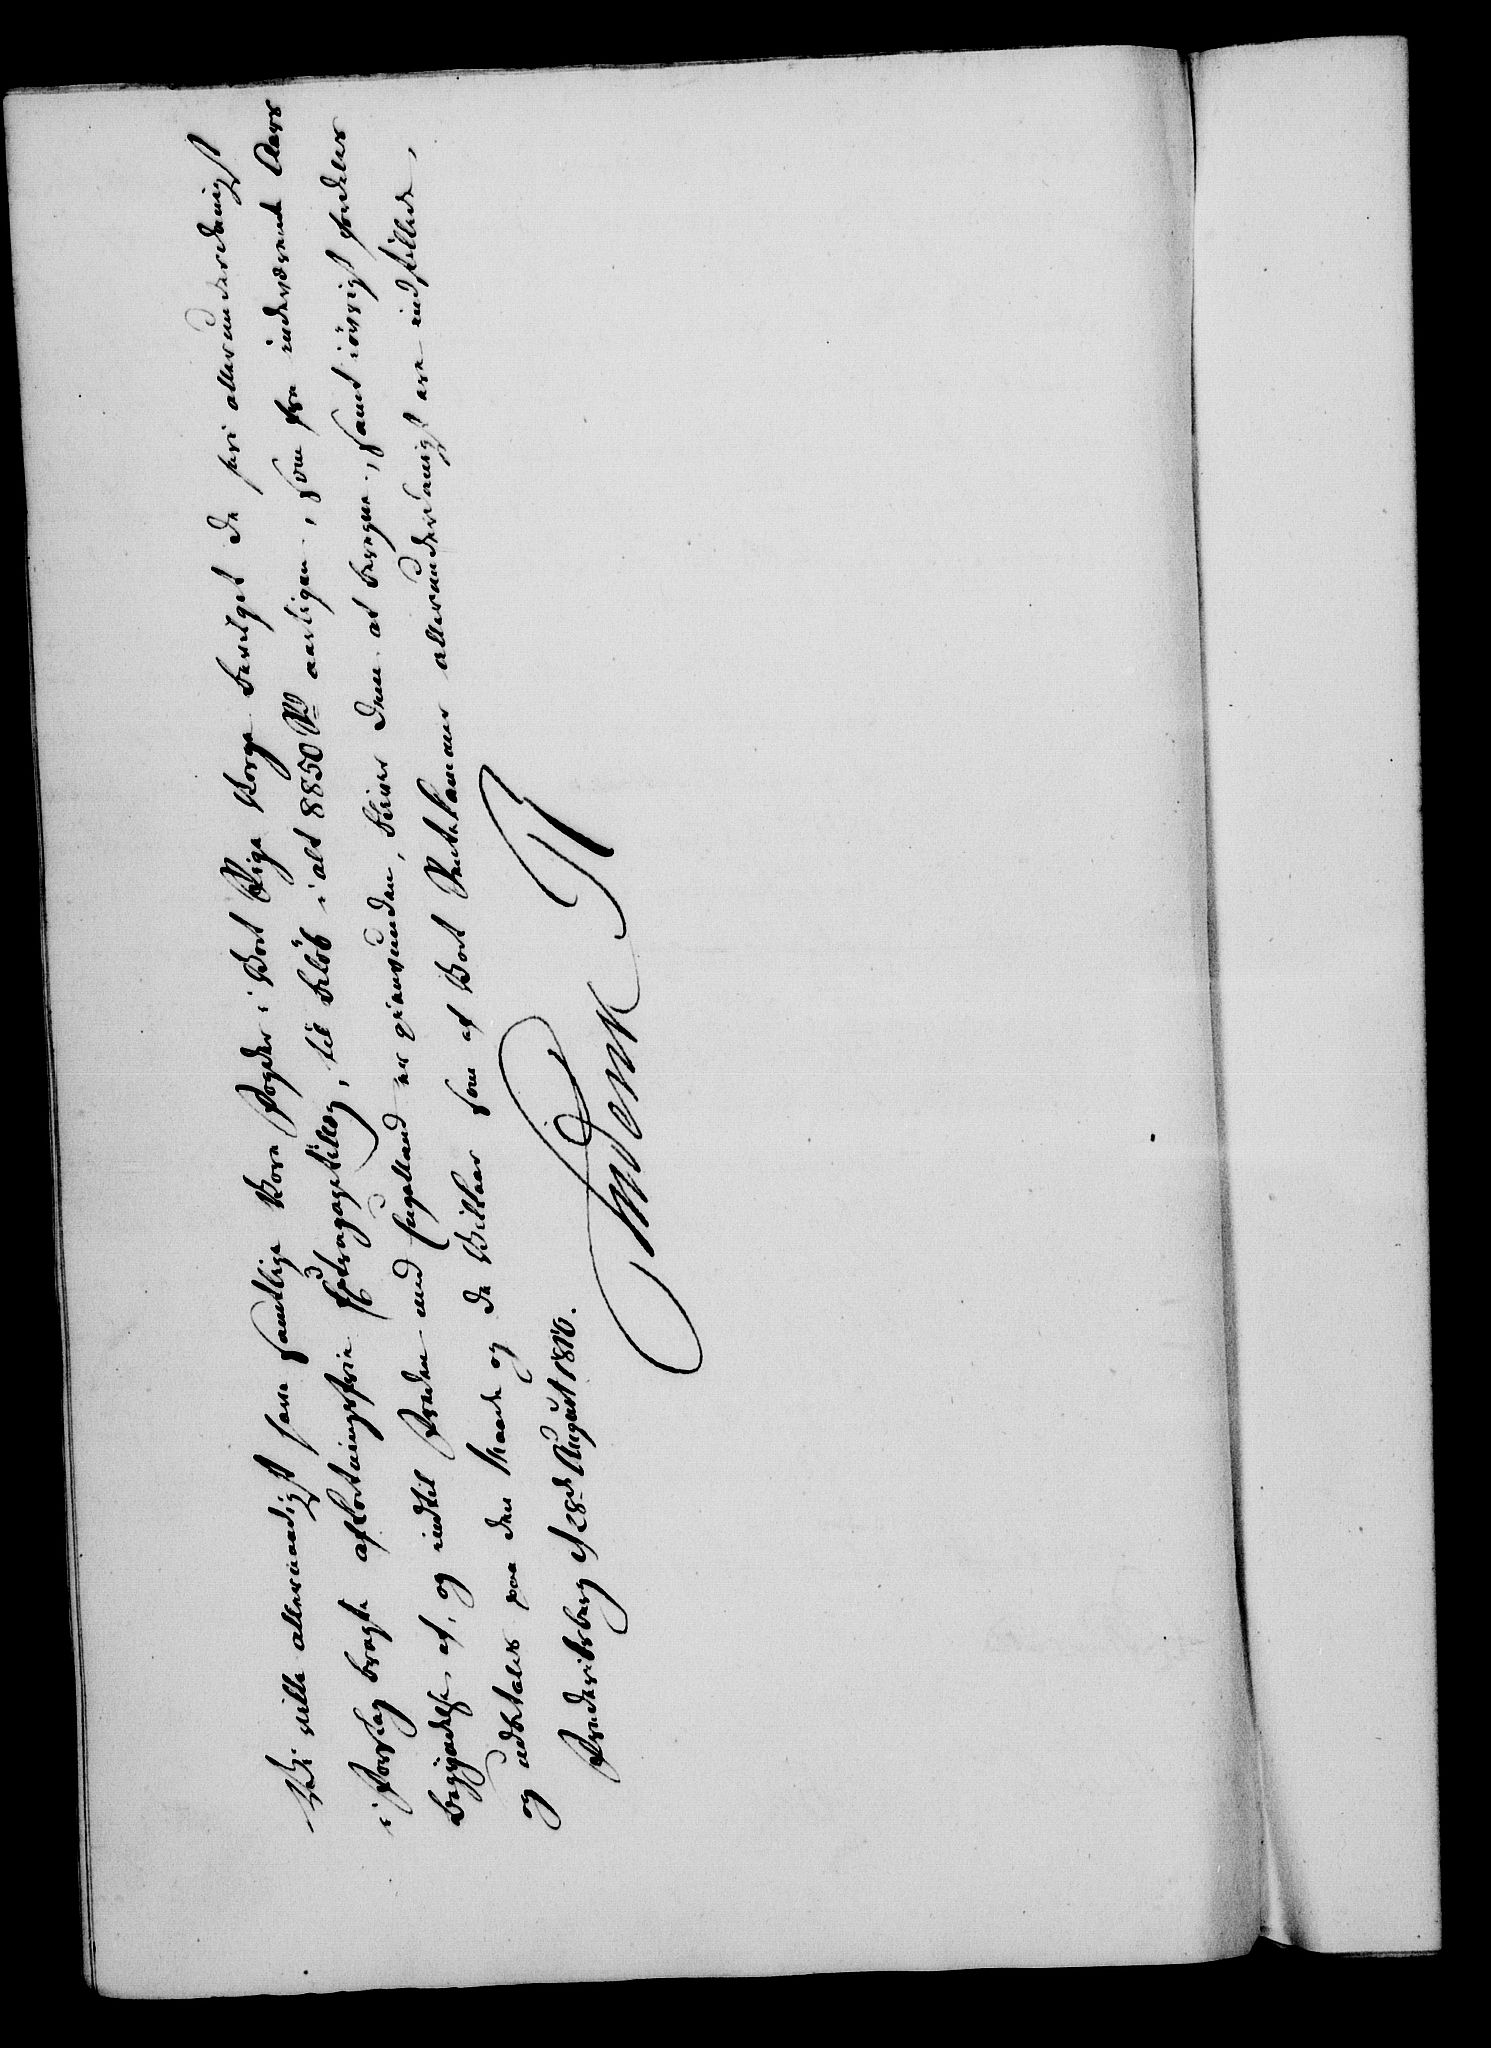 Vi ville allernaadigst have samtlige Vore Fogder i Vort Rige Norge bevilget de heri allerunderdanigst
i Forslag bragte afkortningsfrie Godtgjørelse, til Beløb i alt 8850 Rd aarligen, som fra indeværende Aars
Begyndelse af, og indtil Freden med Engelland er gienvunden, bliver dem at beregne, samt iøvrigt fordeles
og udbetales paa den Maade og de Vilkaar som af Vort Rentekammer allerunderdanigst ere indstillede.
Frederiksberg d 28de August 1810.
Frederik R